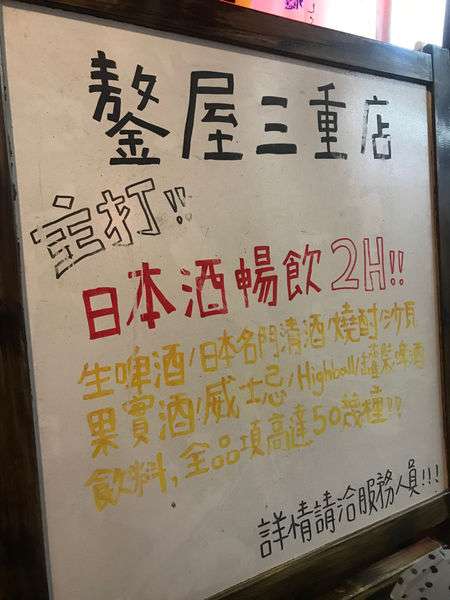 鏊屋三重店
主打!!
日本酒暢飲2H!!
生啤酒/日本名門清酒/燒酎/沙瓦
果實酒/威士忌/Highball/啤酒
飲料,全品項高達50幾種!!
詳情請洽服務人員!!!